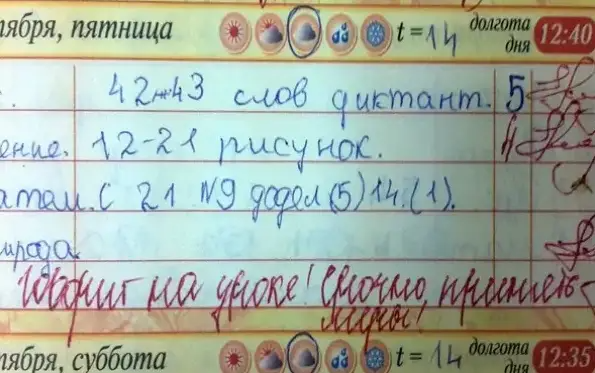 ября, пятница t=14 долгота дня 12:40
42 43 слов диктант. 5
ение. 12-21 рисунок. 4
атем. С 21 №9 додел (5) 14.(1).
ирода
Говорит на уроке! Срочно, примите
меры!
ября, суббота t=14 долгота дня 12:35